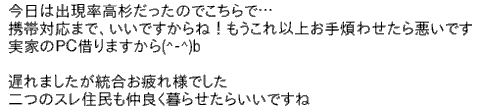 今日は出現率高杉だったのでこちらで…
携帯対応まで、いいですからね！もうこれ以上お手煩わせたら悪いです
実家のPC借りますから(^-^)b

遅れましたが統合お疲れ様でした
二つのスレ住民も仲良く暮らせたらいいですね